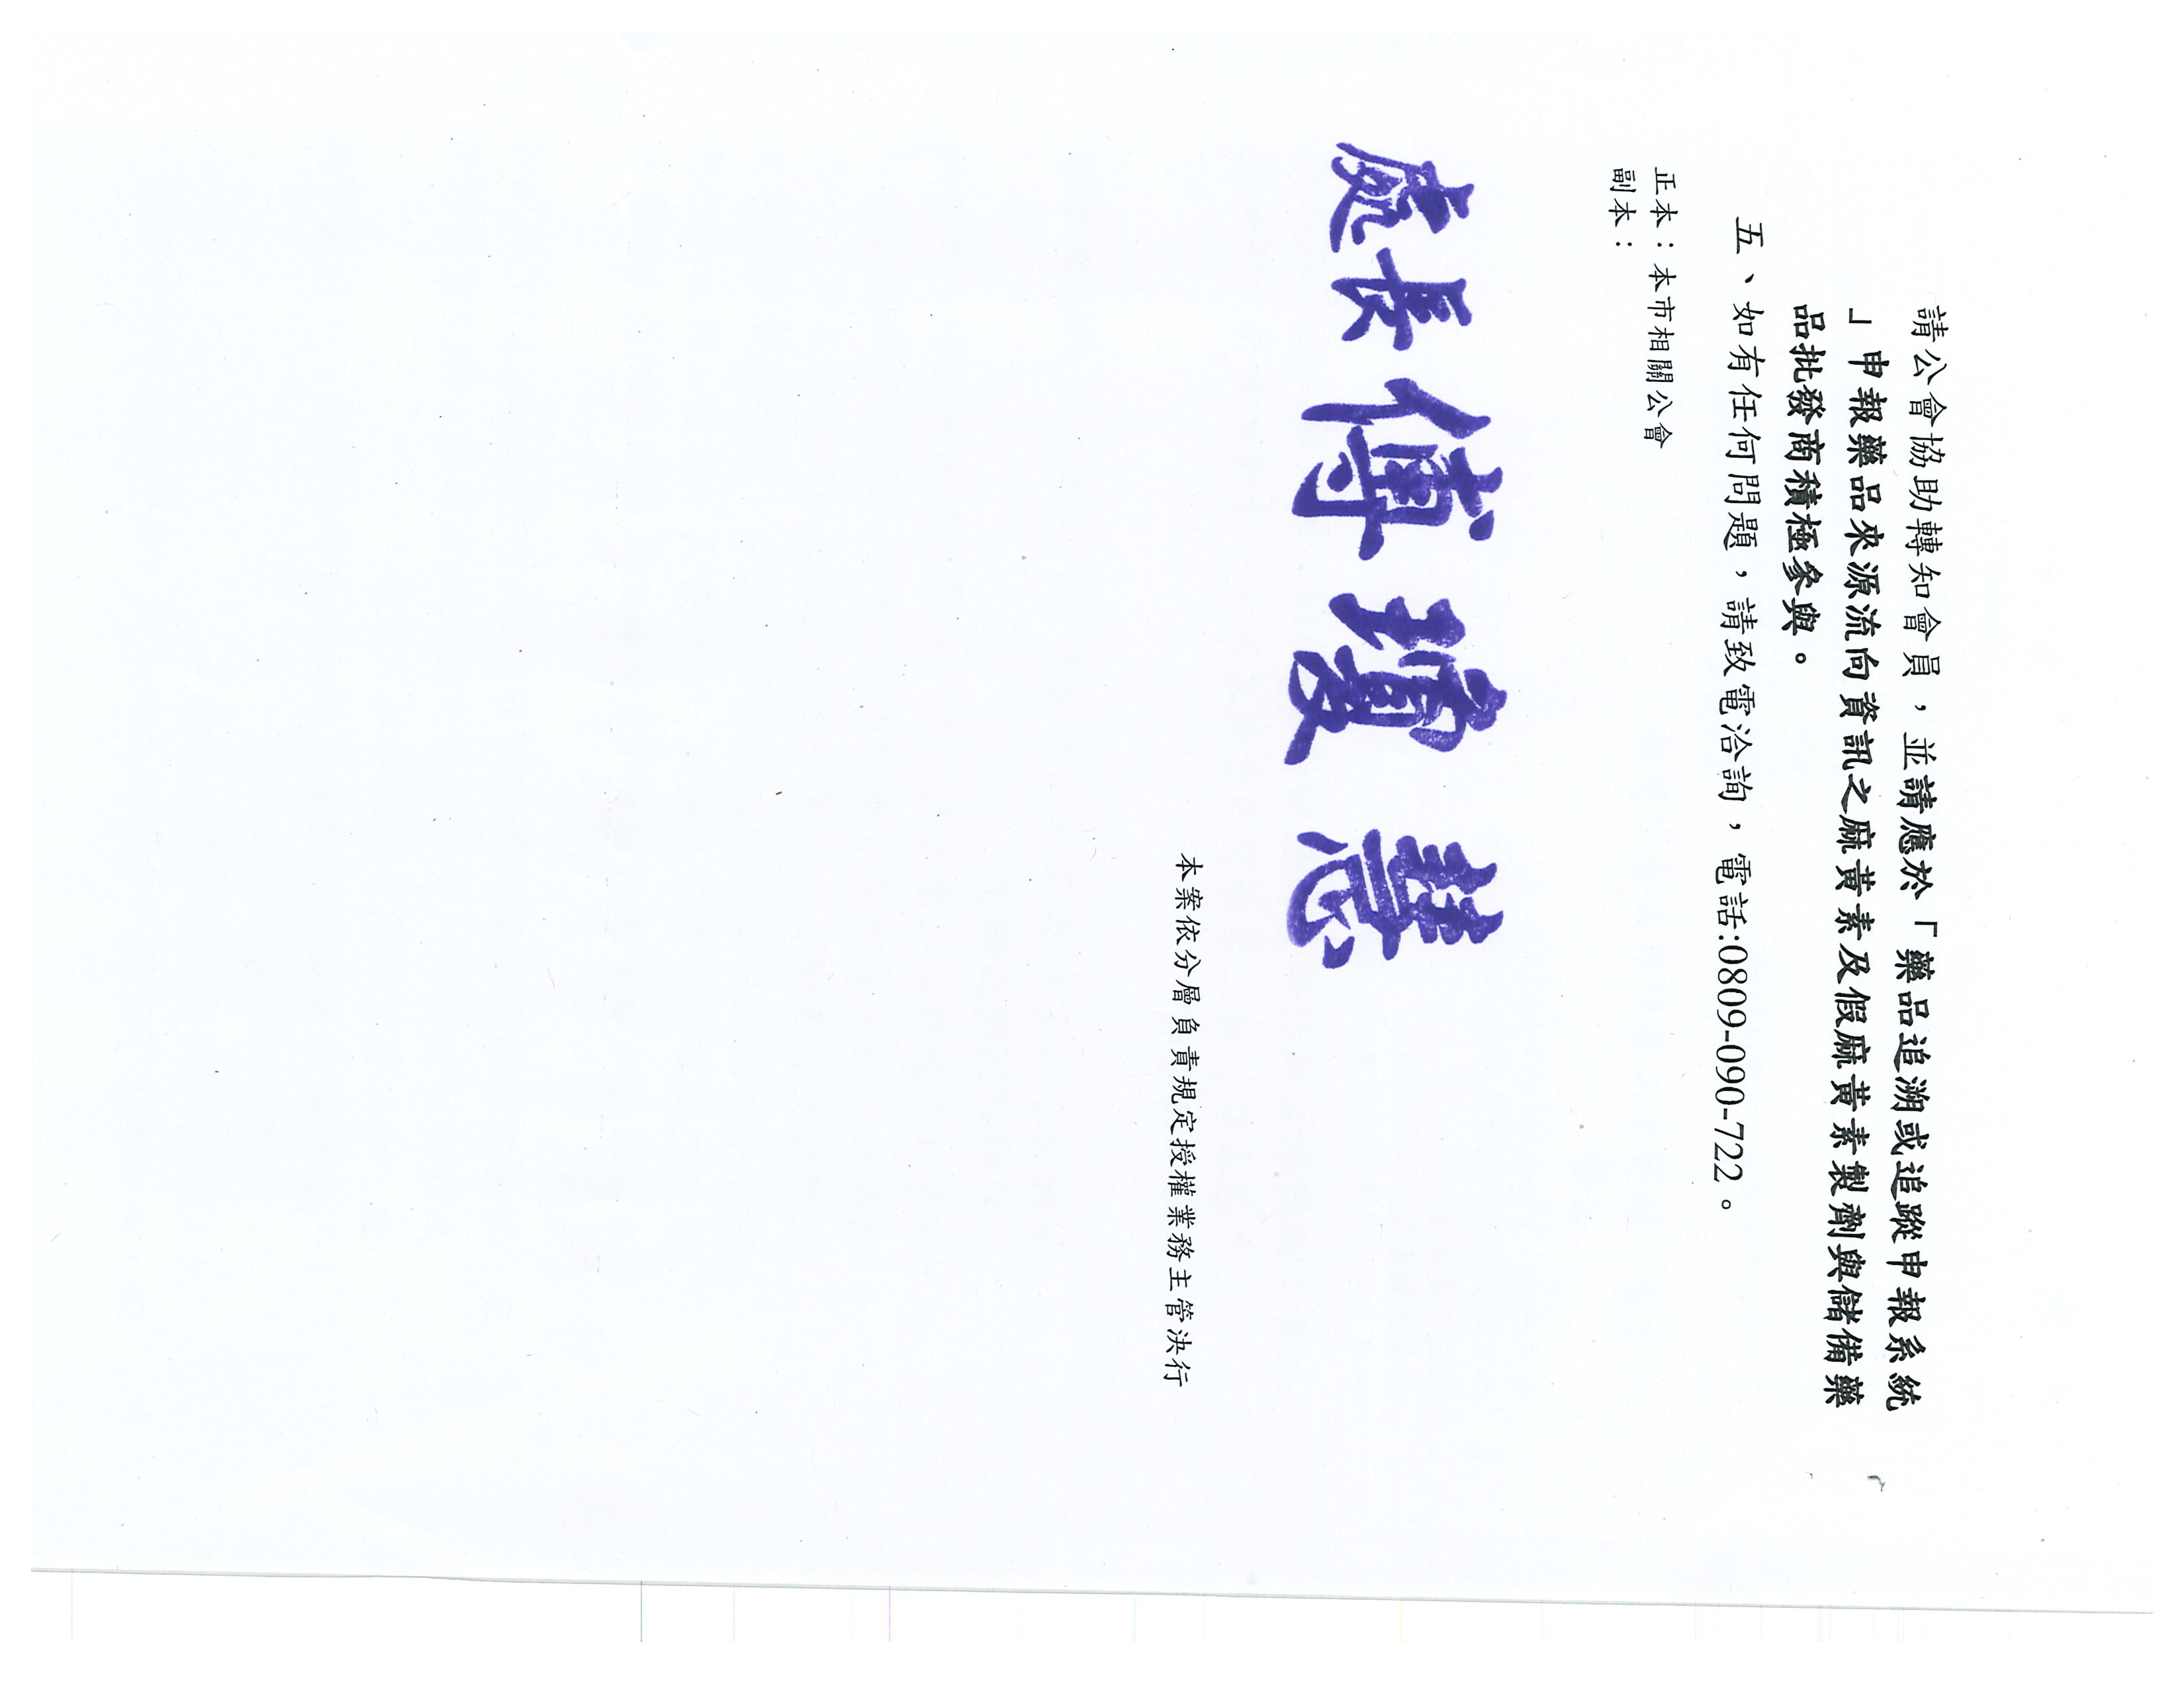 請公會協助轉知會員，並請應於「藥品追溯或追蹤申報系統
」申報藥品來源流向資訊之麻黃素及假麻黃素製劑與儲備藥
品批發商積極參與。
五、如有任何問題，請致電洽詢，電話:0809-090-722。
正本：本市相關公會
副本：
處長傅瓊慧
本案依分層負責規定授權業務主管決行